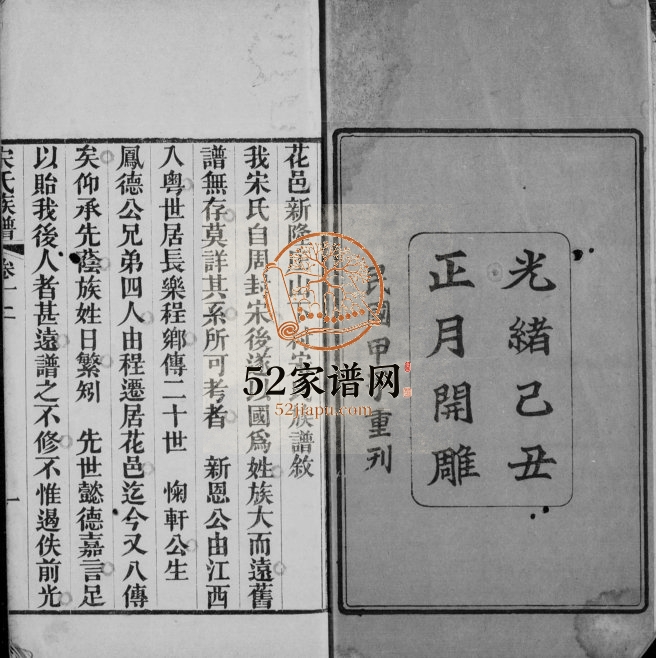 光緒己丑
正月開雕
民國甲 重刊
花邑新隆 山 族譜敘
我宋氏自周封宋後遂 國爲姓族大而遠舊
譜無存莫詳其系所可考者 新恩公由江西
入粵世居長樂程鄉傳二十世 惸軒公生
鳳德公兄弟四人由程遷居花邑迄今又八傳
矣仰承先蔭族姓日繁矧 先世懿德嘉言足
以貽我後人者甚遠譜之不修不惟遏佚前光
宋氏族譜 卷十二 一
52家谱网
52jiapu.com